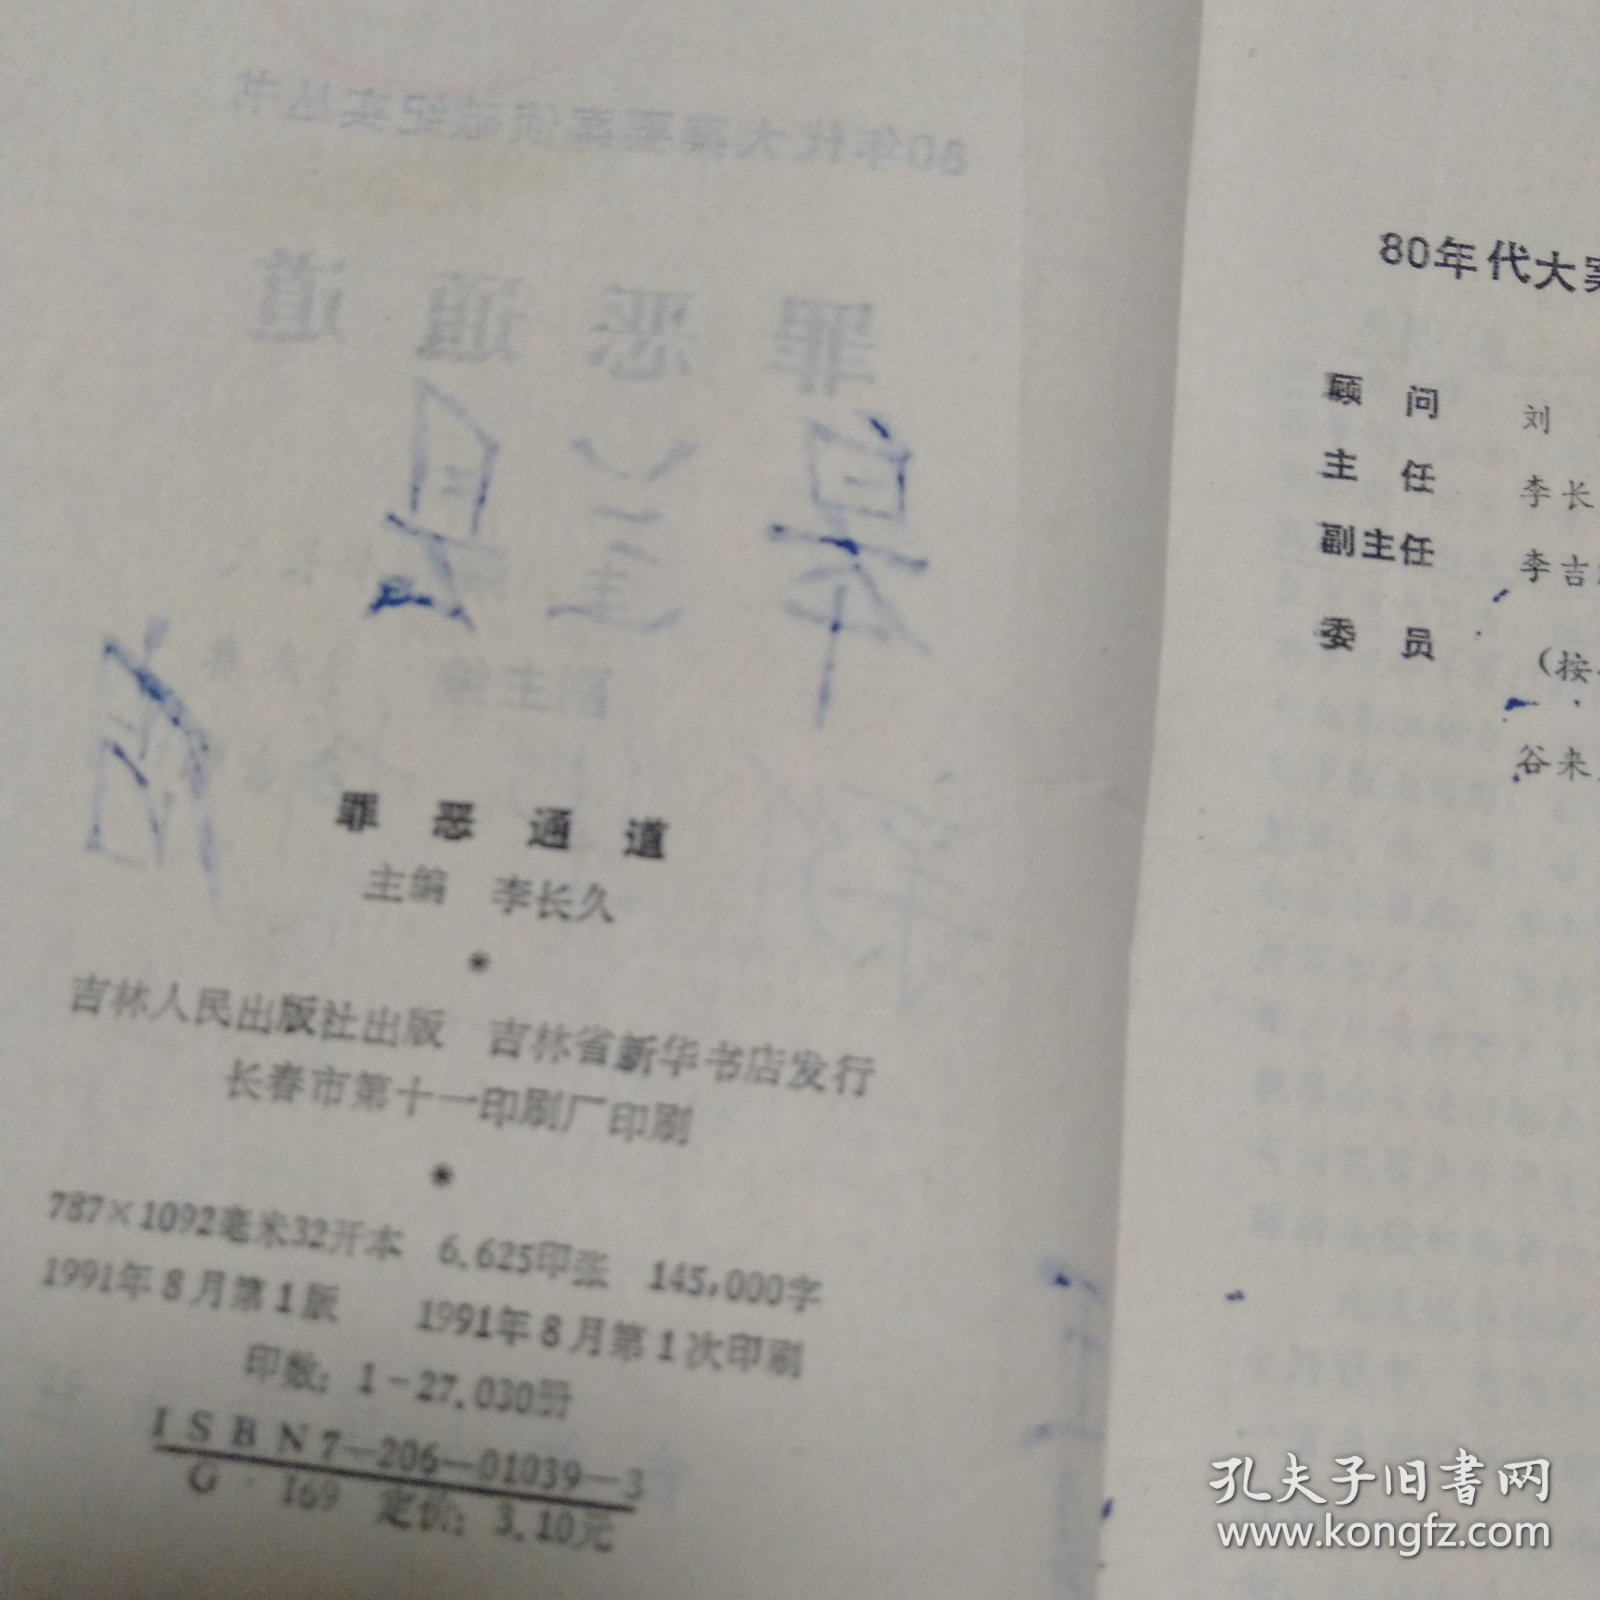 罪恶通道
主编 李长久
*
吉林人民出版社出版 吉林省新华书店发行
长春市第十一印刷厂印刷
*
787×1092毫米32开本 6.625印张 145,000字
1991年8月第1版 1991年8月第1次印刷
印数：1－27,030册
ISBN7—206—01039—3
G·169 定价：3.10元
80年代大案
顾问 刘
主任 李长
副主任 李吉
委员 （按
谷来
孔夫子旧书网
www.kongfz.com